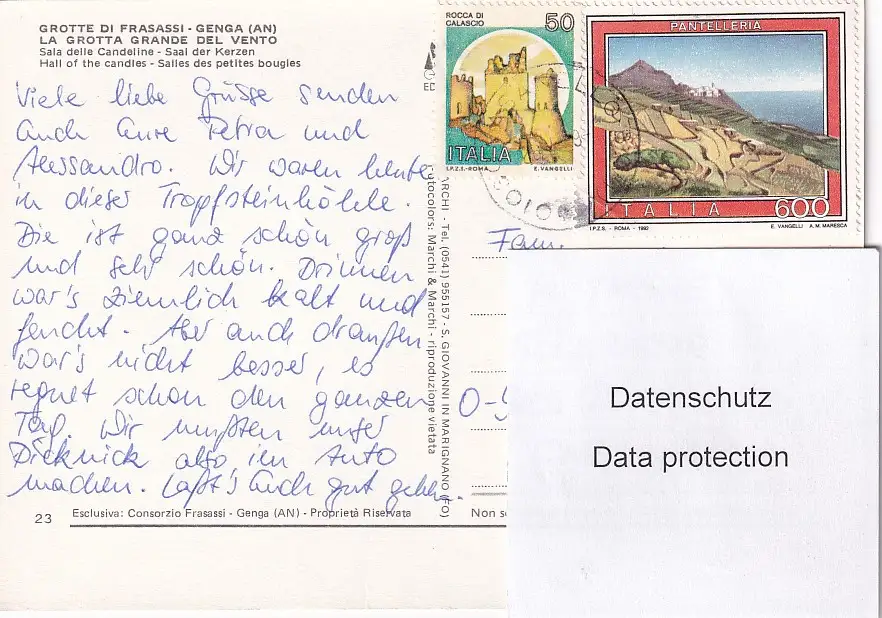 GROTTE DI FRASASSI - GENGA (AN)
LA GROTTA GRANDE DEL VENTO
Sala delle Candeline - Saal der Kerzen
Hall of the candles - Salles des petites bougies
Viele liebe Grüsse senden
Euch Eure Petra und
Alessandro. Wir waren heute
in dieser Tropfsteinhöhle.
Die ist ganz schön groß
und sehr schön. Drinnen
war's ziemlich kalt und
feucht. Aber auch draußen
war's nicht besser, es
regnet schon den ganzen
Tag. Wir mußten unser
Picknick also im Auto
machen. Laßt's Euch gut gehen.
23
Esclusiva: Consorzio Frasassi - Genga (AN) - Proprietà Riservata
ED
ARCHI - Tel. (0541) 955157 - S. GIOVANNI IN MARIGNANO (FO)
Fotocolors: Marchi & Marchi - riproduzione vietata
ROCCA DI
CALASCIO
50
ITALIA
I.P.Z.S.-ROMA E. VANGELLI
PANTELLERIA
ITALIA 600
I.P.Z.S. - ROMA - 1992 E. VANGELLI A.M. MARESCA
Fam.
O-
Non
Datenschutz
Data protection